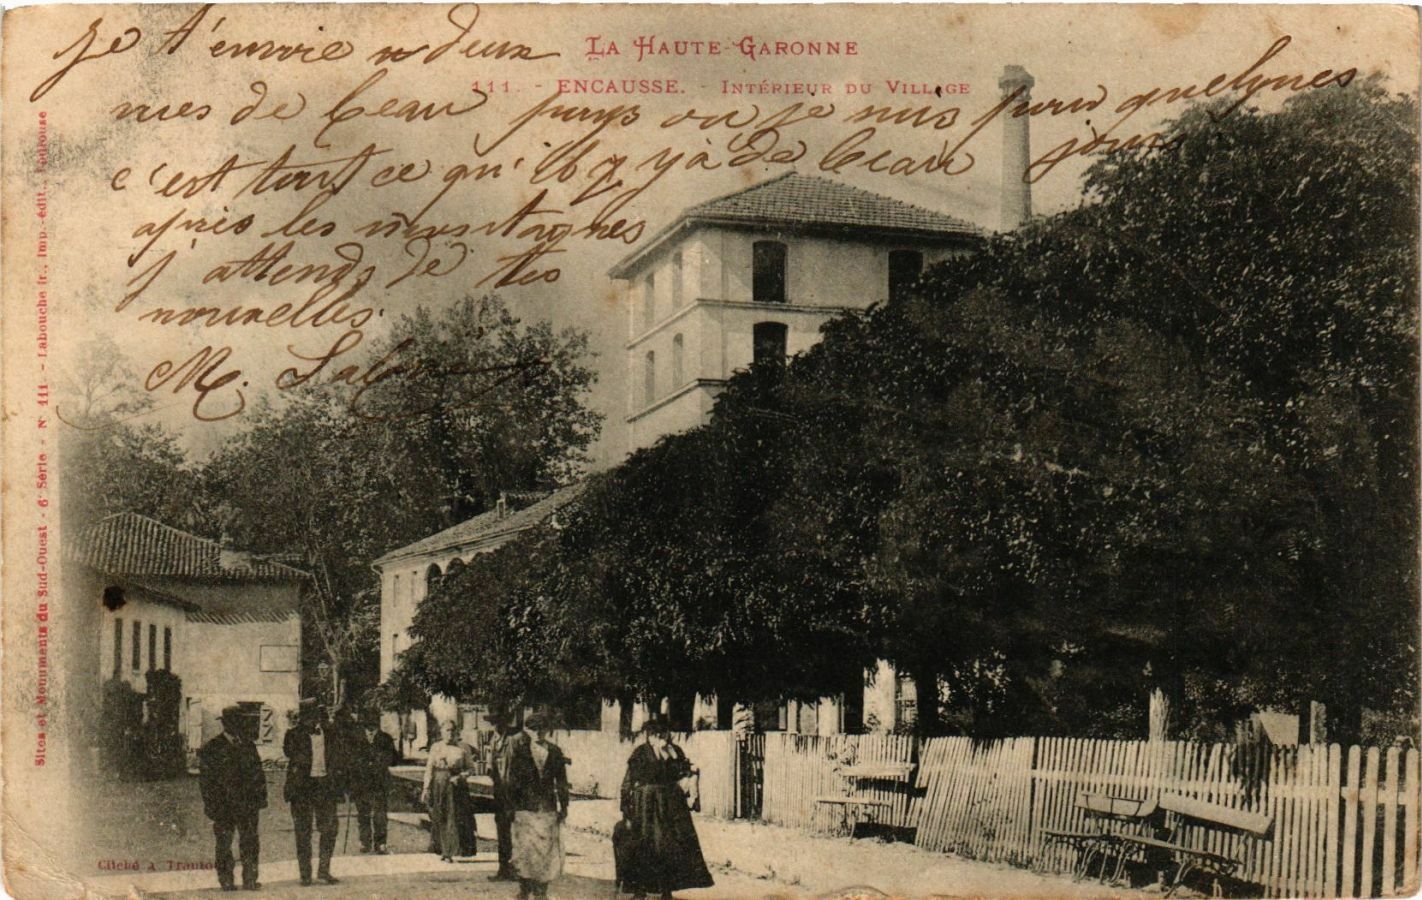 LA HAUTE-GARONNE
111. - ENCAUSSE. - INTÉRIEUR DU VILLAGE
je t'envoie deux
vues de beau pays ou je suis pour quelques
jours
c'est tout ce qu'il y a de beau
après les montagnes
j'attends de tes
nouvelles.
M.
Sites et Monuments du Sud-Ouest - 6e Série - N° 111 - Labouche fr., Imp.-édit., Toulouse
Cliché A Trantoul